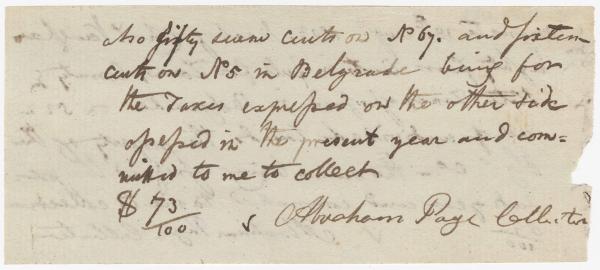 also fifty seven cents on No 67. and sixteen
cents on No 5 in Belgrade being for
the Taxes expressed on the other side
assessed in the present year and com-
mitted to me to collect
$ 73/100 Abraham Page Collector